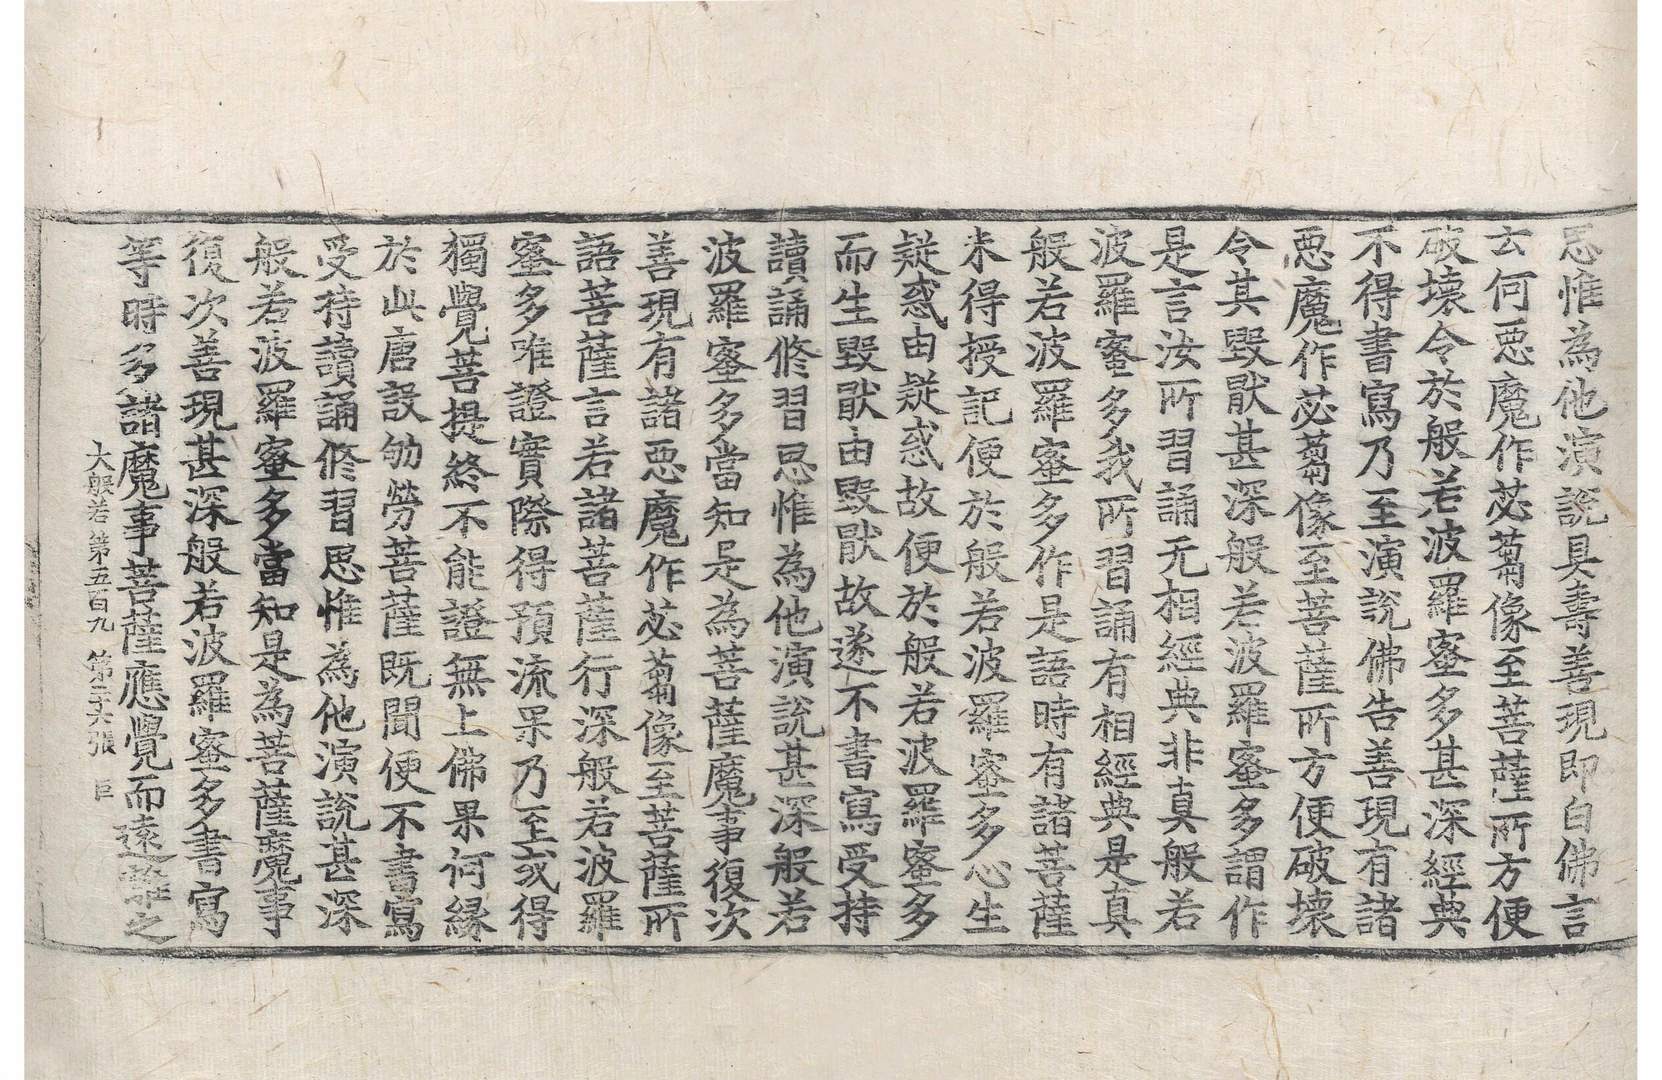 思惟為他演說具壽善現即白佛言
云何惡魔作苾蒭像至菩薩所方便
破壞令於般若波羅蜜多甚深經典
不得書寫乃至演說佛告善現有諸
惡魔作苾蒭像至菩薩所方便破壞
令其毀猒甚深般若波羅蜜多謂作
是言汝所習誦无相經典非真般若
波羅蜜多我所習誦有相經典是真
般若波羅蜜多作是語時有諸菩薩
未得授記便於般若波羅蜜多心生
疑惑由疑惑故便於般若波羅蜜多
而生毀猒由毀猒故遂不書寫受持
讀誦修習思惟為他演說甚深般若
波羅蜜多當知是為菩薩魔事復次
善現有諸惡魔作苾蒭像至菩薩所
語菩薩言若諸菩薩行深般若波羅
蜜多唯證實際得預流果乃至或得
獨覺菩提終不能證無上佛果何緣
於此唐設劬勞菩薩既聞便不書寫
受持讀誦修習思惟為他演說甚深
般若波羅蜜多當知是為菩薩魔事
復次善現甚深般若波羅蜜多書寫
等時多諸魔事菩薩應覺而遠離之
大般若第五百九 第二十六張 巨